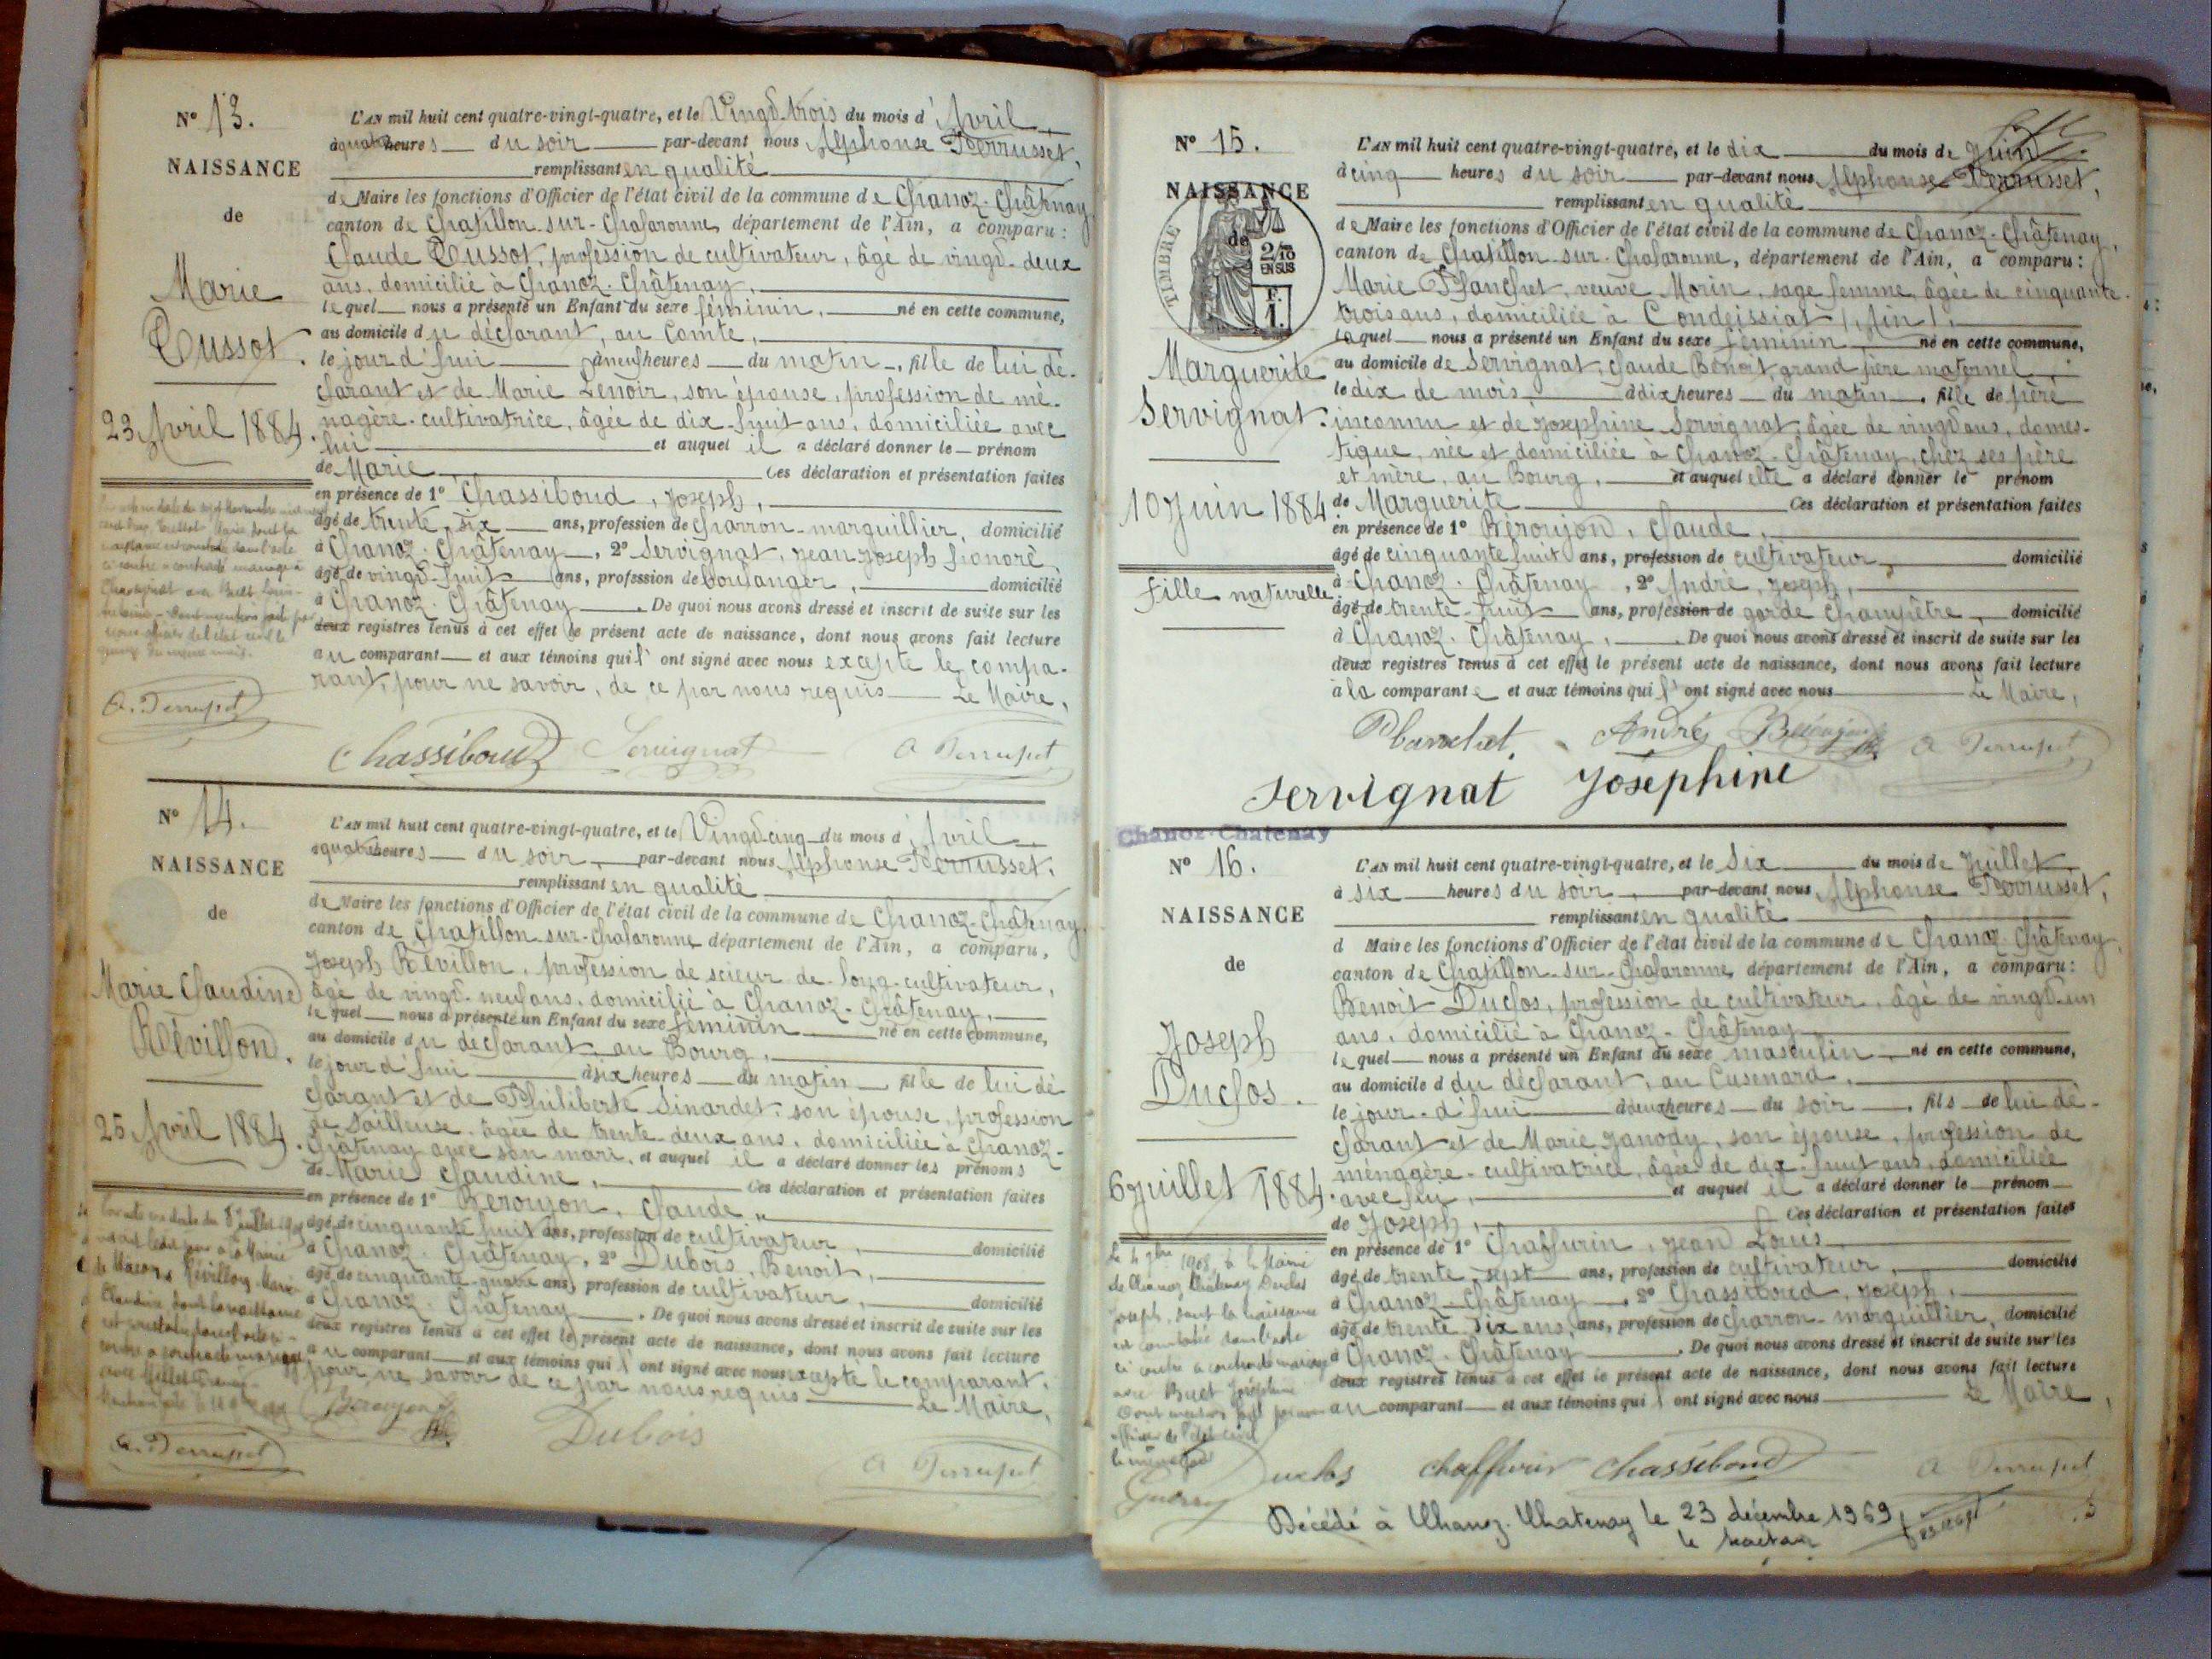 N° 13.
NAISSANCE
de
Marie
Tussot.
23 Avril 1884.
L'AN mil huit cent quatre-vingt-quatre, et le Vingt-trois du mois d'Avril
à quatre heures du soir par-devant nous Alphonse Perrusset,
remplissant en qualité
de Maire les fonctions d'Officier de l'état civil de la commune de Chanoz-Châtenay,
canton de Chatillon-sur-Chalaronne, département de l'Ain, a comparu :
Claude Tussot, profession de cultivateur, âgé de vingt-deux
ans, domicilié à Chanoz-Châtenay,
lequel nous a présenté un Enfant du sexe féminin, né en cette commune,
au domicile du déclarant, au Comte,
le jour d'hui à neuf heures du matin, fille de lui dé-
clarant et de Marie Lenoir, son épouse, profession de mé-
nagère-cultivatrice, âgée de dix-huit ans, domiciliée avec
lui et auquel il a déclaré donner le prénom
de Marie Ces déclaration et présentation faites
en présence de 1° Chassiboud, Joseph,
âgé de trente-six ans, profession de charron-marguillier, domicilié
à Chanoz-Châtenay, 2° Servignat, Jean Joseph honoré,
âgé de vingt-huit ans, profession de boulanger, domicilié
à Chanoz-Châtenay. De quoi nous avons dressé et inscrit de suite sur les
deux registres tenus à cet effet le présent acte de naissance, dont nous avons fait lecture
au comparant et aux témoins qui l'ont signé avec nous excepté le compa-
rant, pour ne savoir, de ce par nous requis Le Maire,
A. Perrusset
Chassiboud Servignat A Perrusset
N° 14.
NAISSANCE
de
Marie Claudine
Révillon.
25 Avril 1884.
L'AN mil huit cent quatre-vingt-quatre, et le Vingt-cinq du mois d'Avril
à quatre heures du soir, par-devant nous Alphonse Perrusset,
remplissant en qualité
de Maire les fonctions d'Officier de l'état civil de la commune de Chanoz-Châtenay,
canton de Chatillon-sur-Chalaronne département de l'Ain, a comparu,
Joseph Révillon, profession de scieur de long-cultivateur,
âgé de vingt-neuf ans, domicilié à Chanoz-Châtenay,
lequel nous a présenté un Enfant du sexe féminin né en cette commune,
au domicile du déclarant, au Bourg,
le jour d'hui à six heures du matin, fille de lui dé
clarant et de Philiberte Sinardet, son épouse, profession
de tailleuse, âgée de trente-deux ans, domiciliée à Chanoz-
Châtenay avec son mari, et auquel il a déclaré donner les prénoms
de Marie Claudine, Ces déclaration et présentation faites
en présence de 1° Béroujon, Claude,
âgé de cinquante huit ans, profession de cultivateur, domicilié
à Chanoz-Châtenay, 2° Dubois, Benoit,
âgé de cinquante-quatre ans, profession de cultivateur, domicilié
à Chanoz-Châtenay. De quoi nous avons dressé et inscrit de suite sur les
deux registres tenus à cet effet le présent acte de naissance, dont nous avons fait lecture
au comparant et aux témoins qui l'ont signé avec nous excepté le comparant,
pour ne savoir de ce par nous requis Le Maire,
Béroujon Dubois
A. Perrusset A Perrusset
N° 15.
NAISSANCE
de
TIMBRE
2/10
EN SUS
F.
1.
Marguerite
Servignat.
10 Juin 1884
Fille naturelle
L'AN mil huit cent quatre-vingt-quatre, et le dix du mois de Juin
à cinq heures du soir par-devant nous Alphonse Perrusset,
remplissant en qualité
de Maire les fonctions d'Officier de l'état civil de la commune de Chanoz-Châtenay,
canton de Chatillon-sur-Chalaronne, département de l'Ain, a comparu :
Marie Planchet, veuve Morin, sage femme, âgée de cinquante-
trois ans, domiciliée à Condeissiat (Ain),
laquel nous a présenté un Enfant du sexe féminin né en cette commune,
au domicile de Servignat, Claude Benoit, grand père maternel,
le dix de mois, à dix heures du matin, fille de père
inconnu et de Josephine Servignat, âgée de vingt ans, domes-
tique, née et domiciliée à Chanoz-Châtenay, chez ses père
et mère, au Bourg, et auquel elle a déclaré donner le prénom
de Marguerite Ces déclaration et présentation faites
en présence de 1° Béroujon, Claude,
âgé de cinquante huit ans, profession de cultivateur, domicilié
à Chanoz-Châtenay, 2° André, Joseph,
âgé de trente-huit ans, profession de garde champêtre, domicilié
à Chanoz-Châtenay. De quoi nous avons dressé et inscrit de suite sur les
deux registres tenus à cet effet le présent acte de naissance, dont nous avons fait lecture
à la comparante et aux témoins qui l'ont signé avec nous Le Maire,
Planchet André Béroujon A Perrusset
Servignat Joséphine
Chanoz-Chatenay
N° 16.
NAISSANCE
de
Joseph
Duclos.
6 Juillet 1884.
L'AN mil huit cent quatre-vingt-quatre, et le Six du mois de Juillet
à six heures du soir, par-devant nous Alphonse Perrusset,
remplissant en qualité
d Maire les fonctions d'Officier de l'état civil de la commune de Chanoz-Châtenay,
canton de Chatillon-sur-Chalaronne, département de l'Ain, a comparu :
Benoit Duclos, profession de cultivateur, âgé de vingt-un
ans, domicilié à Chanoz-Châtenay
lequel nous a présenté un Enfant du sexe masculin né en cette commune,
au domicile d du déclarant, au Cusenard,
le jour-d'hui à deux heures du soir, fils de lui dé-
clarant et de Marie Janody, son épouse, profession de
ménagère-cultivatrice, âgée de dix-huit ans, domiciliée
avec lui, et auquel il a déclaré donner le prénom
de Joseph, Ces déclaration et présentation faites
en présence de 1° Chaffurin, Jean Louis
âgé de trente-sept ans, profession de cultivateur, domicilié
à Chanoz-Châtenay, 2° Chassiboud, Joseph,
âgé de trente-six ans, ans, profession de charron-marguillier, domicilié
à Chanoz-Châtenay. De quoi nous avons dressé et inscrit de suite sur les
deux registres tenus à cet effet le présent acte de naissance, dont nous avons fait lecture
au comparant et aux témoins qui l'ont signé avec nous Le Maire,
Duclos Chaffurin Chassiboud A Perrusset
Décédé à Chanoz-Chatenay le 23 décembre 1969